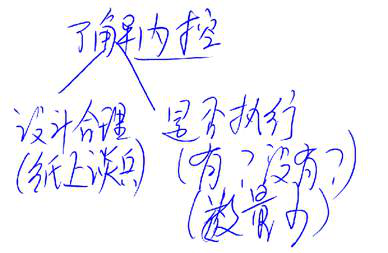 了解内控
设计合理
(纸上谈兵)
是否执行
(有？没有？)
(数量少)